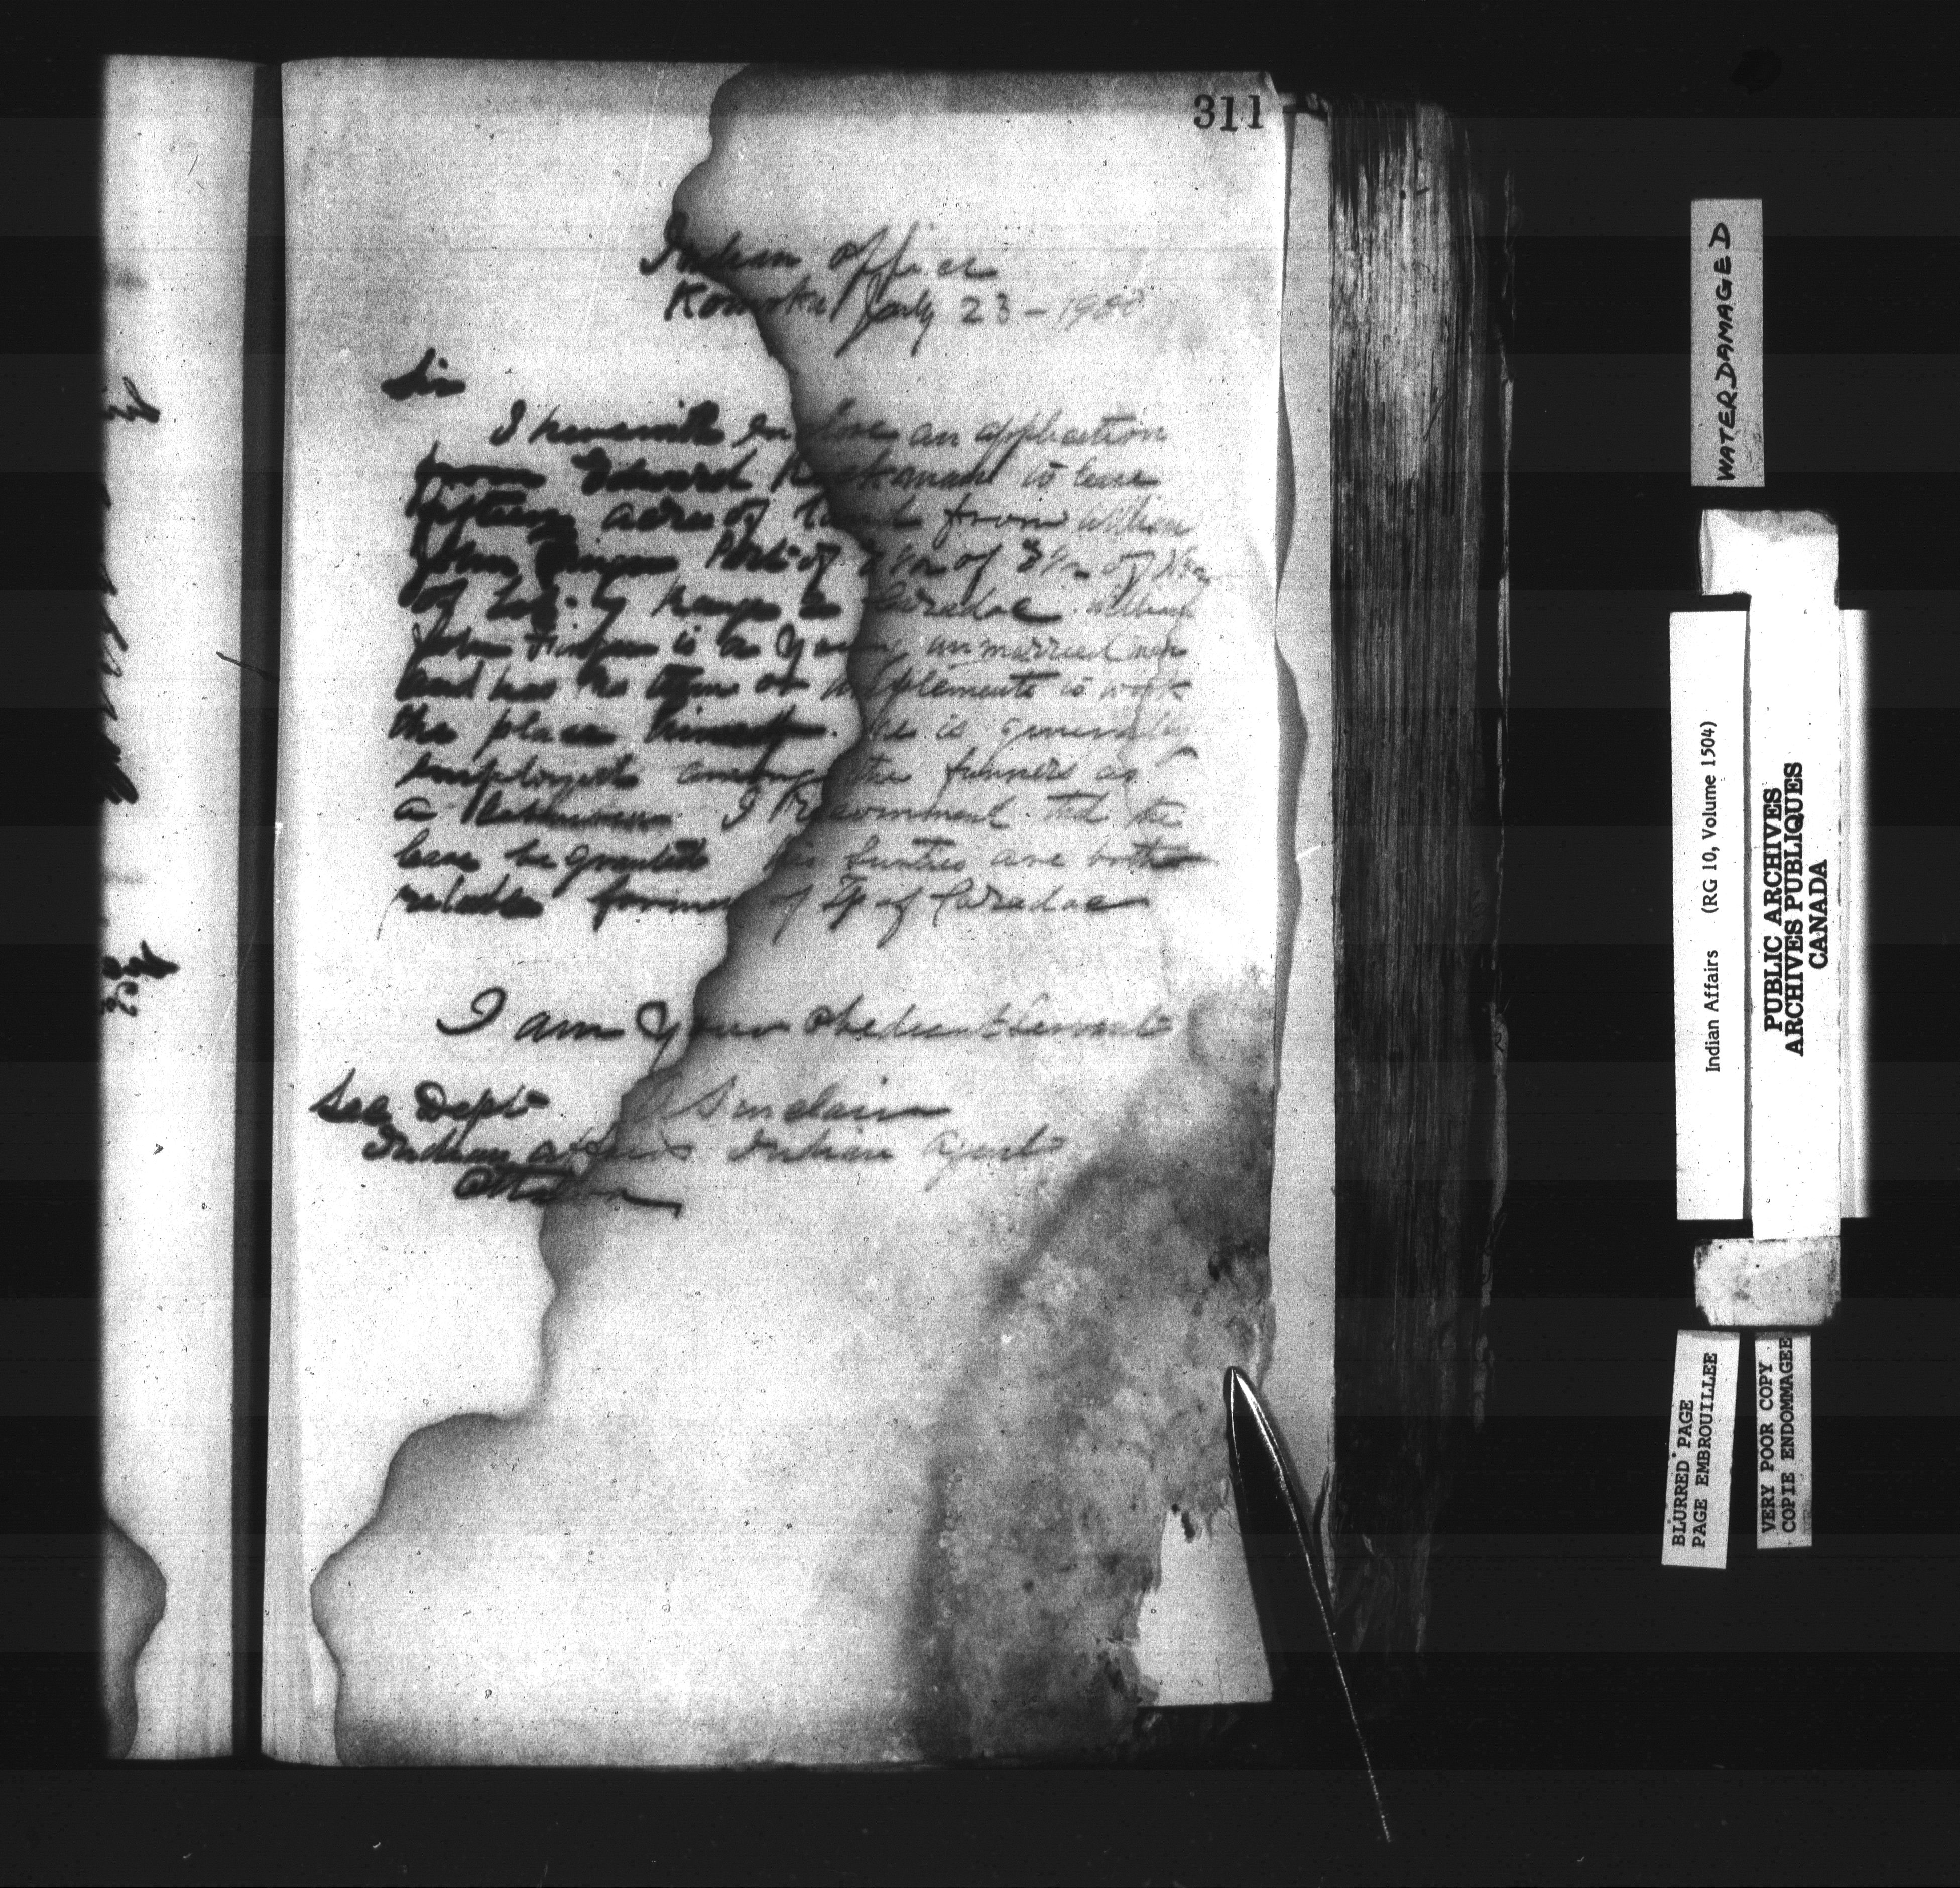 311
Indian Office
Komoka July 23 - 1900
Sir
I herewith Enclose an application
from Edward to lease
fifteen acres of land from William
John Part of of of
of Lot Range Caradoc William
John is a young unmarried man
and has no team or implements to work
the place himself. He is generally
employed among the farmers as
a I Recommend that the
lease be granted his Sureties are both
reliable farmers of Tp of Caradoc
I am Your obedient Servant
Sinclair
Indian Agent
Sec. Dept
Indian affairs
Ottawa
WATERDAMAGED
Indian Affairs (RG 10, Volume 1504)
PUBLIC ARCHIVES
ARCHIVES PUBLIQUES
CANADA
BLURRED PAGE
PAGE EMBROUILLEE
VERY POOR COPY
COPIE ENDOMMAGEE